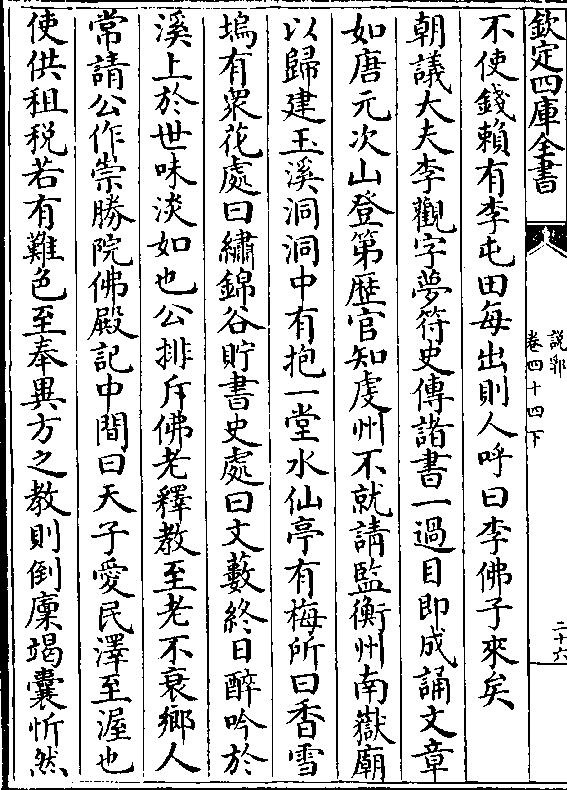 欽定四庫全書
說郛
卷四十四下
二十六
不使錢賴有李屯田每出則人呼曰李佛子來矣
朝議大夫李觀字夢符史傳諸書一過目即成誦文章
如唐元次山登第歷官知虔州不就請監衡州南嶽廟
以歸建玉溪洞洞中有抱一堂水仙亭有梅所曰香雪
塢有衆花處曰繡錦谷貯書史處曰文藪終日醉吟於
溪上於世味淡如也公排斥佛老釋教至老不衰鄉人
常請公作崇勝院佛殿記中間曰天子愛民澤至渥也
使供租稅若有難色至奉異方之教則倒廩竭囊忻然